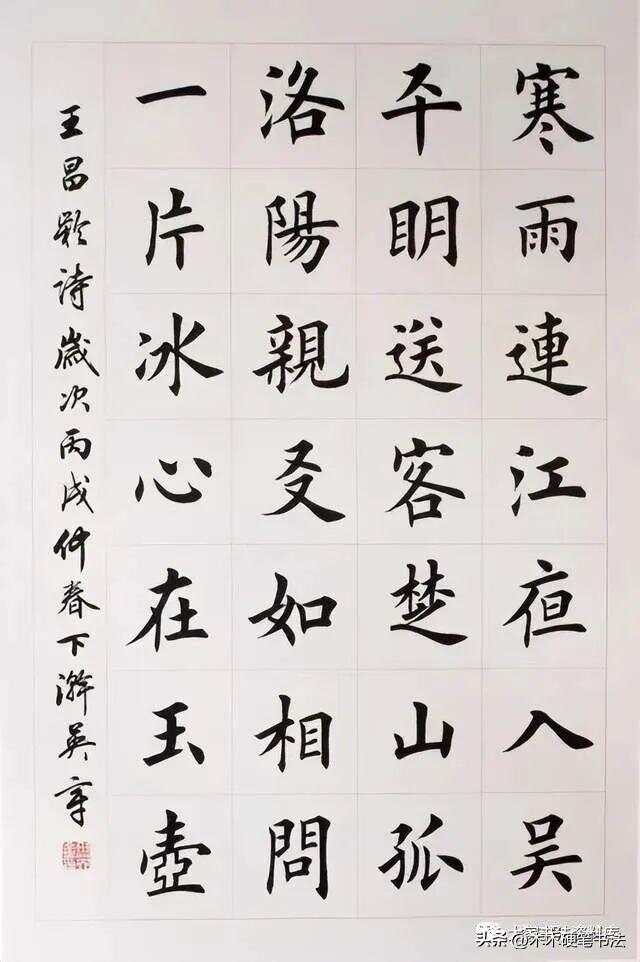 寒雨連江夜入吴
平明送客楚山孤
洛陽親友如相問
一片冰心在玉壺
王昌龄诗歲次丙戌仲春下澣英章
头条@木木硬笔书法